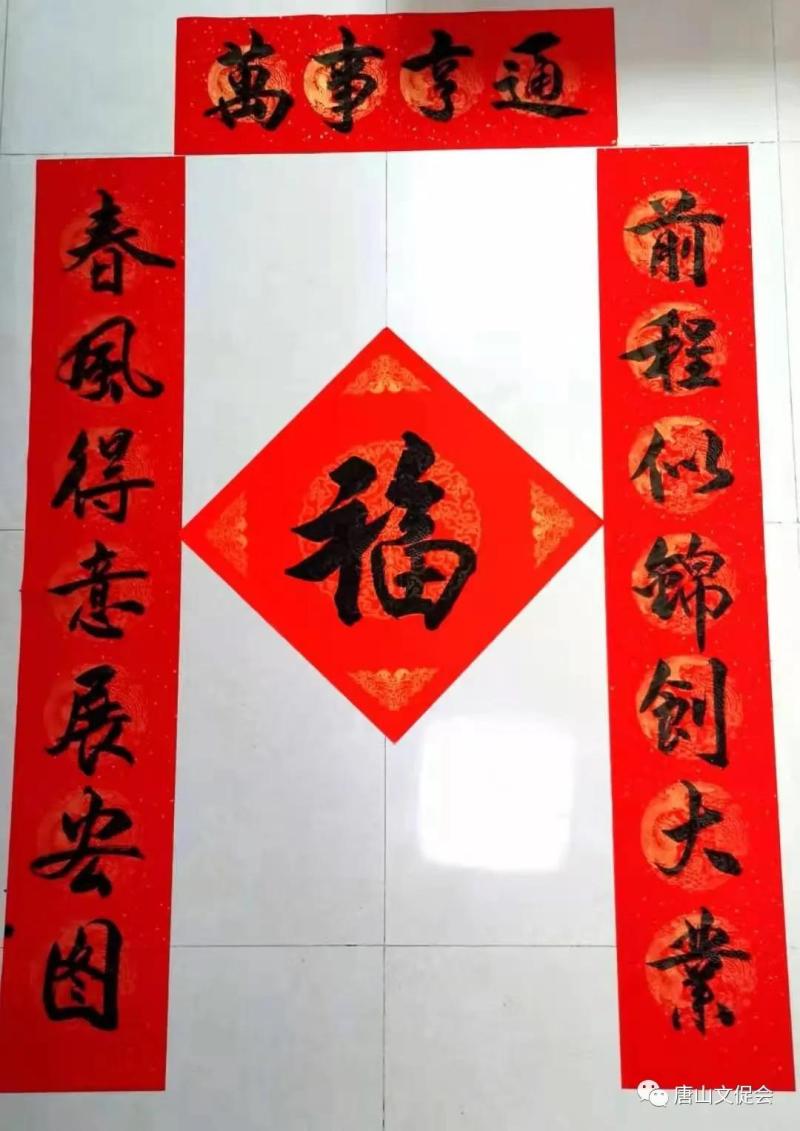 萬事亨通
前程似錦創大業
春風得意展宏图
福
唐山文促会